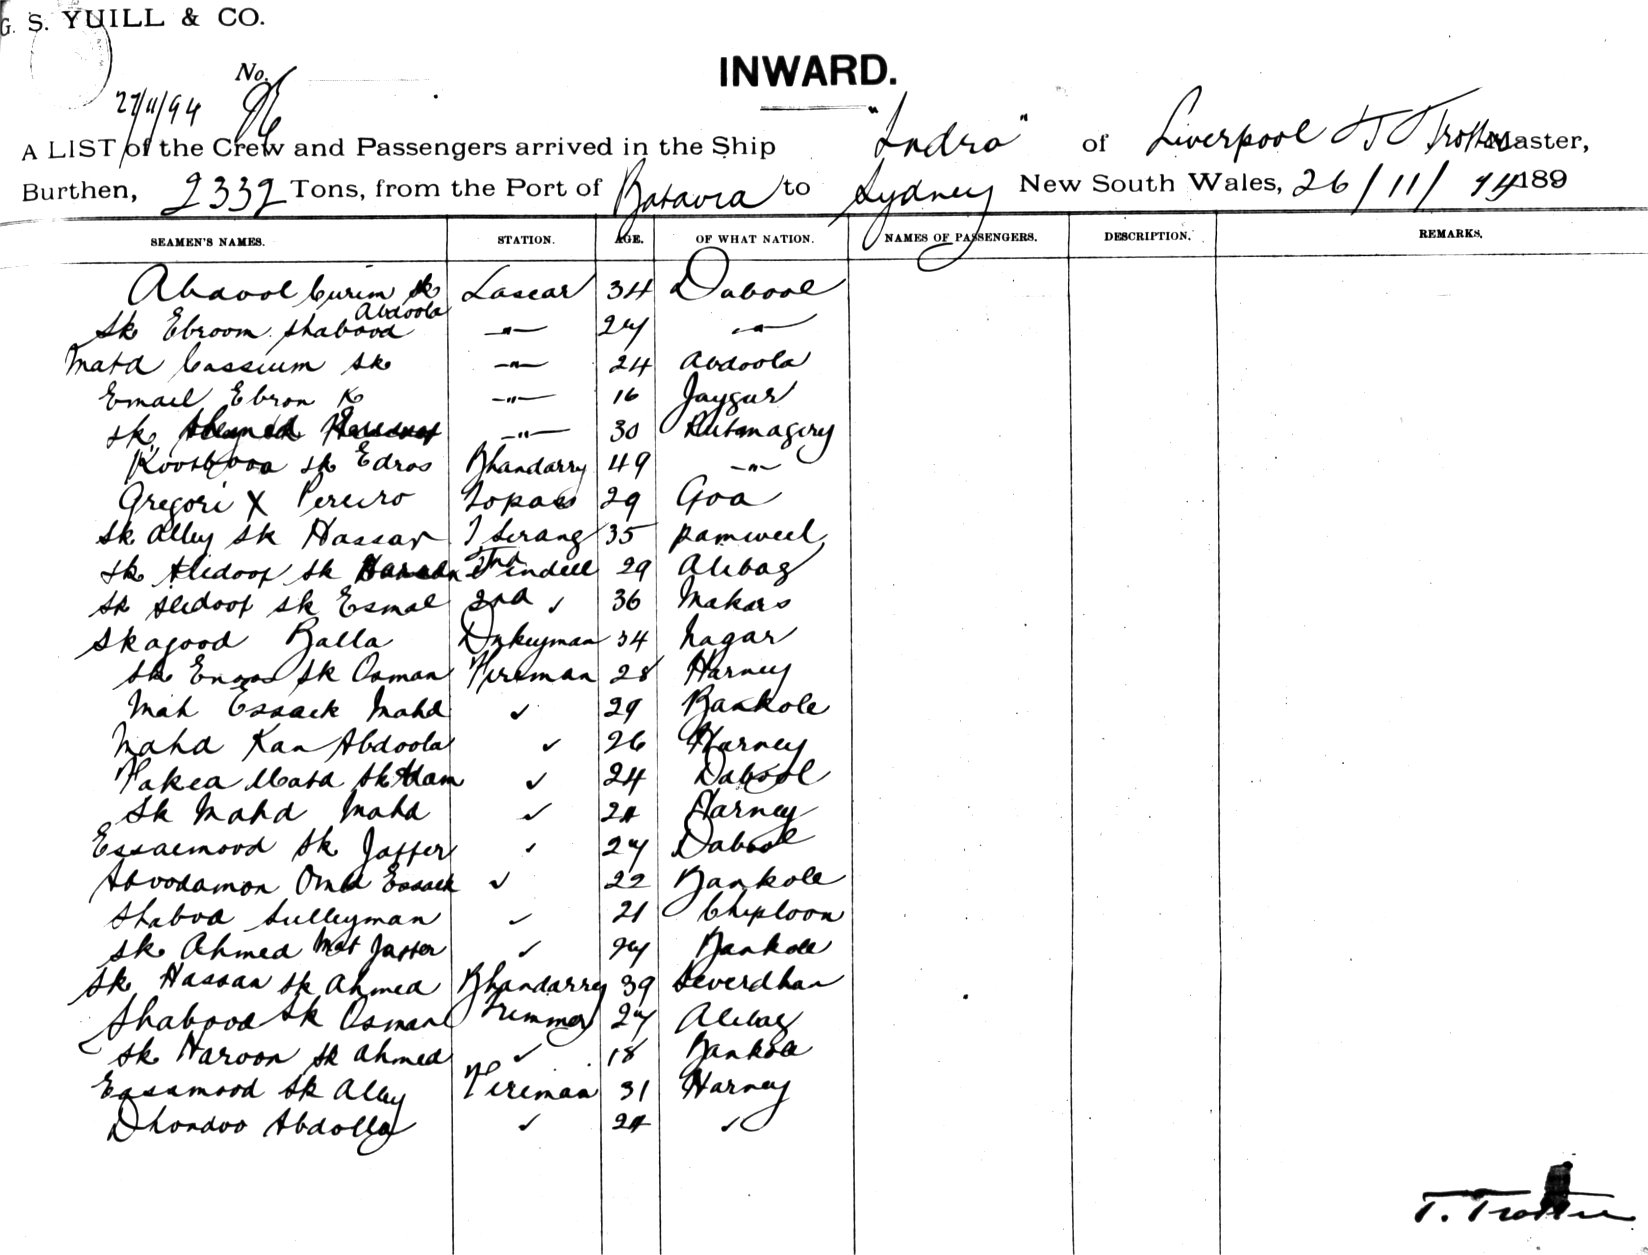 G. S. YUILL & CO.
No.
27/11/94
INWARD.
A LIST of the Crew and Passengers arrived in the Ship "Indra" of Liverpool T Trotter Master,
Burthen, 2332 Tons, from the Port of Batavia to Sydney New South Wales, 26/11/94 189
SEAMEN'S NAMES. STATION. AGE. OF WHAT NATION. NAMES OF PASSENGERS. DESCRIPTION. REMARKS.
Abdool Curim Sk Lascar 34 Dabool
Abdoola
Sk Ebroom Shabood —"— 27 —"—
Mahd Cassium Sk —"— 24 Abdoola
Email Ebron K —"— 16 Jaygur
Sk —"— 30 Rutnagiry
Sk Edros Bhandarry 49 —"—
Gregori X Pereiro Topass 29 Goa
Sk Alley Sk Hassan 1 Serang 35 Pamweel
Sk Aledoof Sk Tindell 29 Alibag
Sk Aledoof Sk Esmal 2nd ✓ 36 Makars
Skagood Balla Dnkeyman 34 Nagar
Sk Sk Osman Firsman 28 Harney
Mah Essack Mahd ✓ 29 Bankole
Mahd Kan Abdoola ✓ 26 Harney
Fakea Sk Adam ✓ 24 Dabool
Sk Mahd Mahd ✓ 24 Harney
Essaemood Sk Jaffer ✓ 27 Dabool
Essack ✓ 22 Bankole
Shabod Sulleyman ✓ 21 Chiploon
Sk Ahmed Mat Jaffer ✓ 27 Bankole
Sk Hassan Sk Ahmed Bhandarry 39 Severdhan
Shabood Sk Osman Trimmer 27 Alibag
Sk Haroon Sk Ahmed ✓ 18 Bankole
Essamood Sk Alley Fireman 31 Harney
Dhondoo Abdolla ✓ 24 ✓
T. Trotter